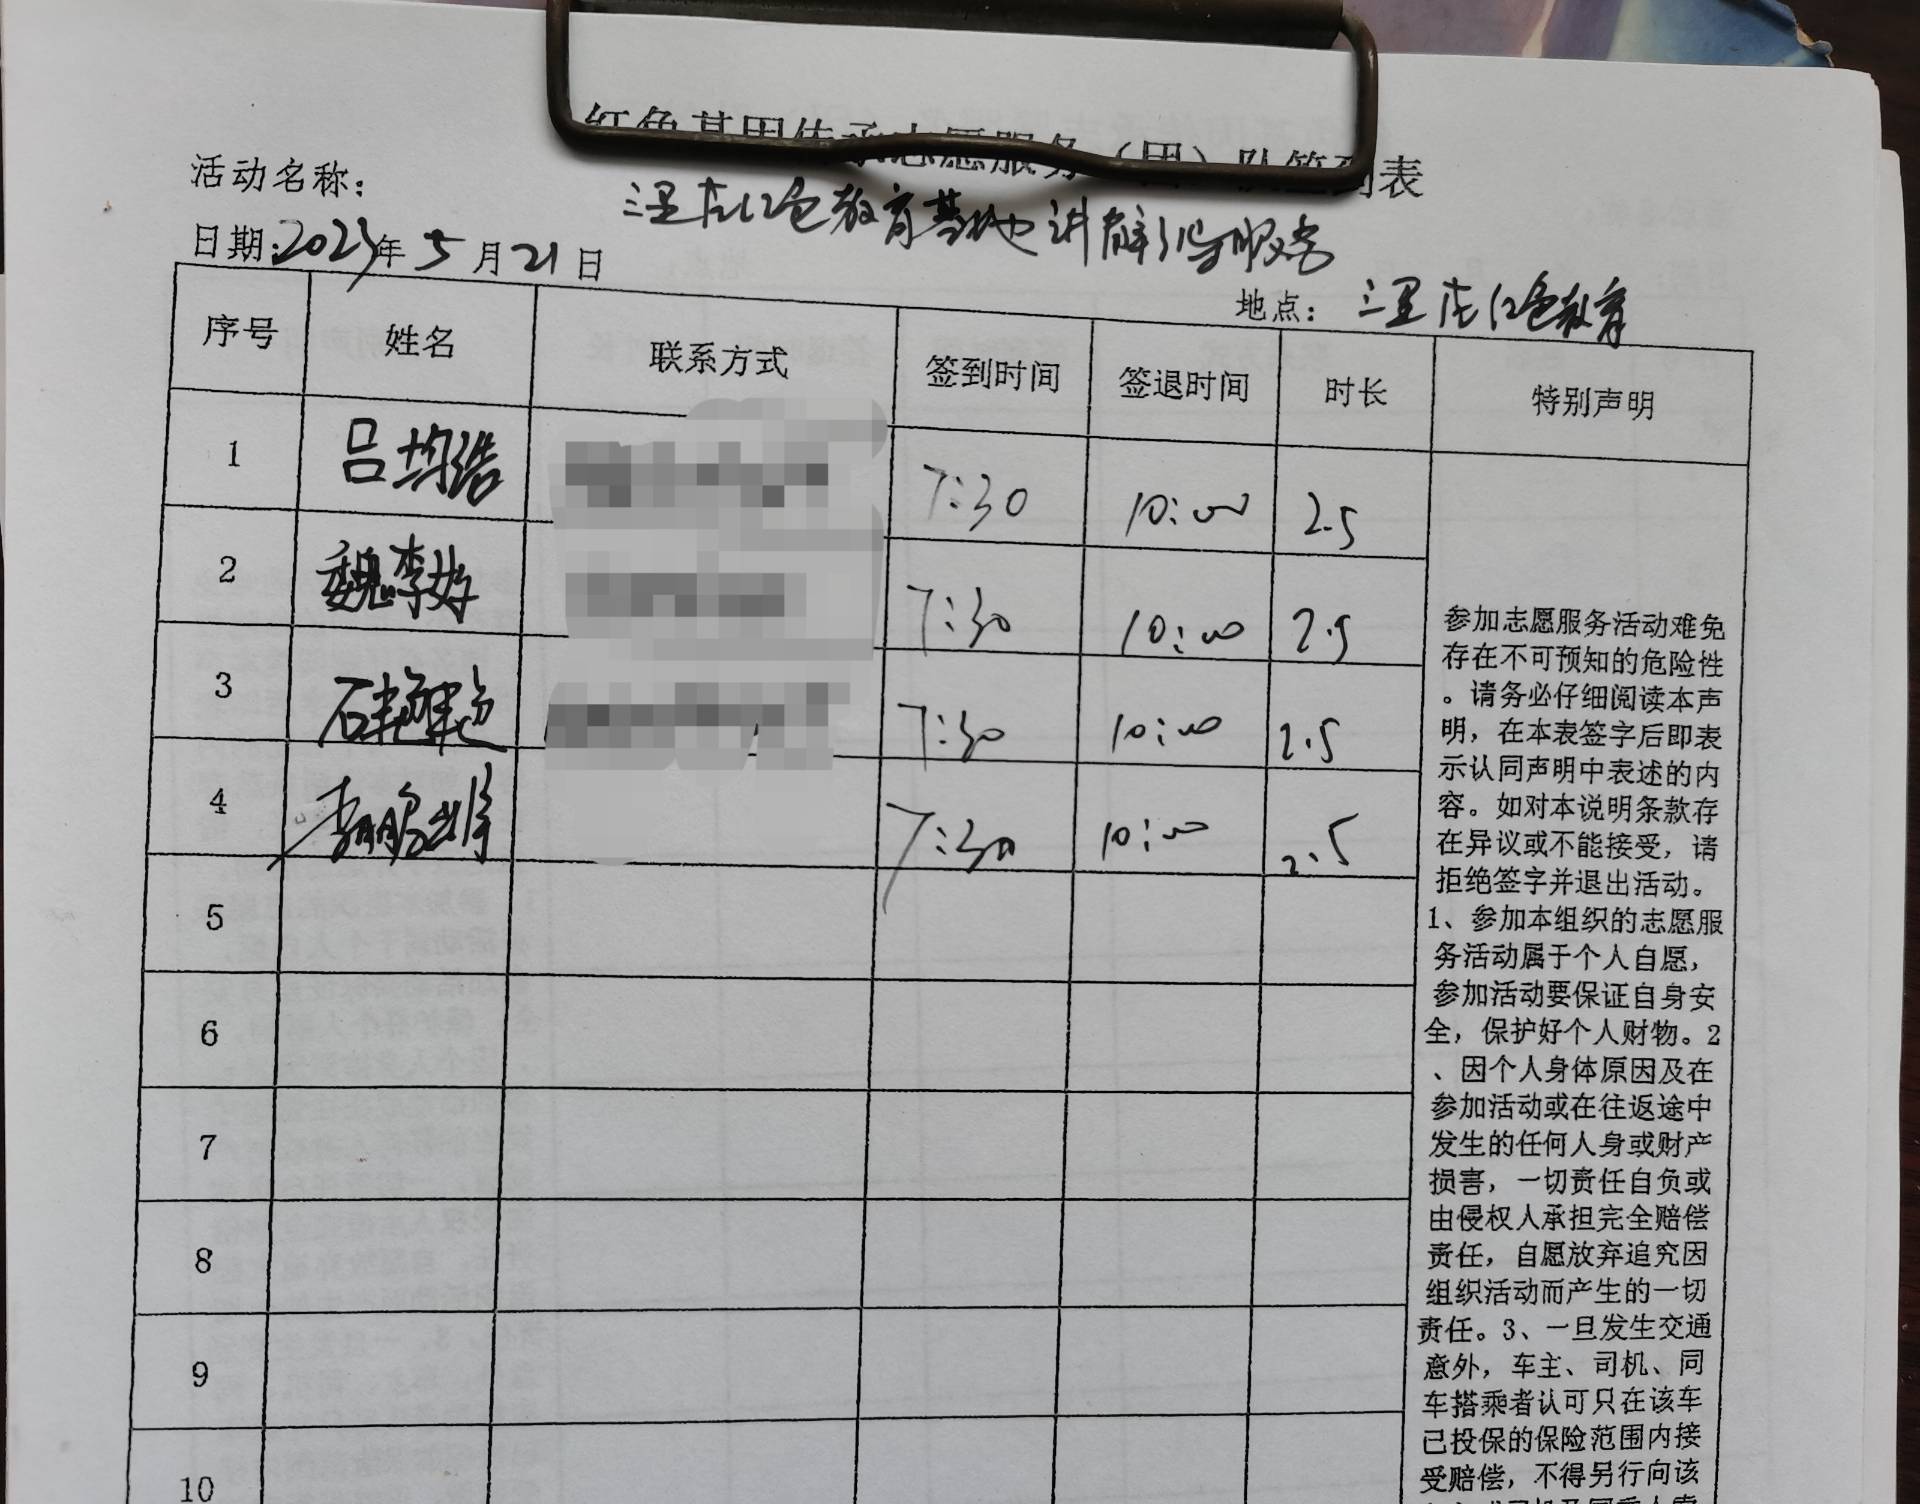 红色基因传承志愿服务（团）队签到表
活动名称：
三里店红色教育基地讲解引导服务
日期：2023年5月21日
地点：三里店红色教育
序号 姓名 联系方式 签到时间 签退时间 时长 特别声明
1 吕均浩 7:30 10:00 2.5
2 魏李婷 7:30 10:00 2.5
3 石艳艳 7:30 10:00 2.5
4 李鹏 7:30 10:00 2.5
5
6
7
8
9
10
参加志愿服务活动难免
存在不可预知的危险性
。请务必仔细阅读本声
明，在本表签字后即表
示认同声明中表述的内
容。如对本说明条款存
在异议或不能接受，请
拒绝签字并退出活动。
1、参加本组织的志愿服
务活动属于个人自愿，
参加活动要保证自身安
全，保护好个人财物。2
、因个人身体原因及在
参加活动或在往返途中
发生的任何人身或财产
损害，一切责任自负或
由侵权人承担完全赔偿
责任，自愿放弃追究因
组织活动而产生的一切
责任。3、一旦发生交通
意外，车主、司机、同
车搭乘者认可只在该车
已投保的保险范围内接
受赔偿，不得另行向该